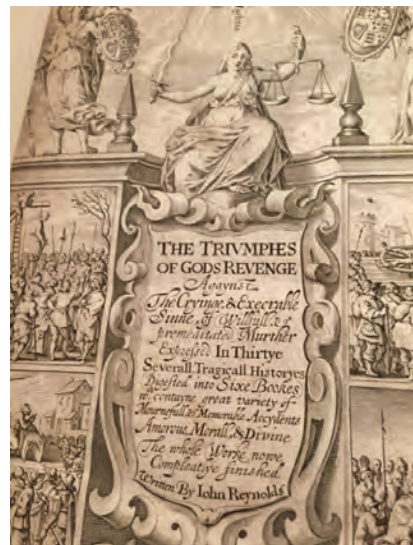 THE TRIVMPHES
OF GODS REVENGE
Agaynst
The Cryinge, & Execrable
Sinne of Willfull, &
premeditated Murther
Expressed In Thirtye
Severall Tragicall Historyes
Digested into Sixe Bookes
wch contayne great variety of
Mournefull & Memorable Accydents
Amorous, Morall, & Divine
The whole Worke nowe
Compleatlye finished
Written By Iohn Reynolds